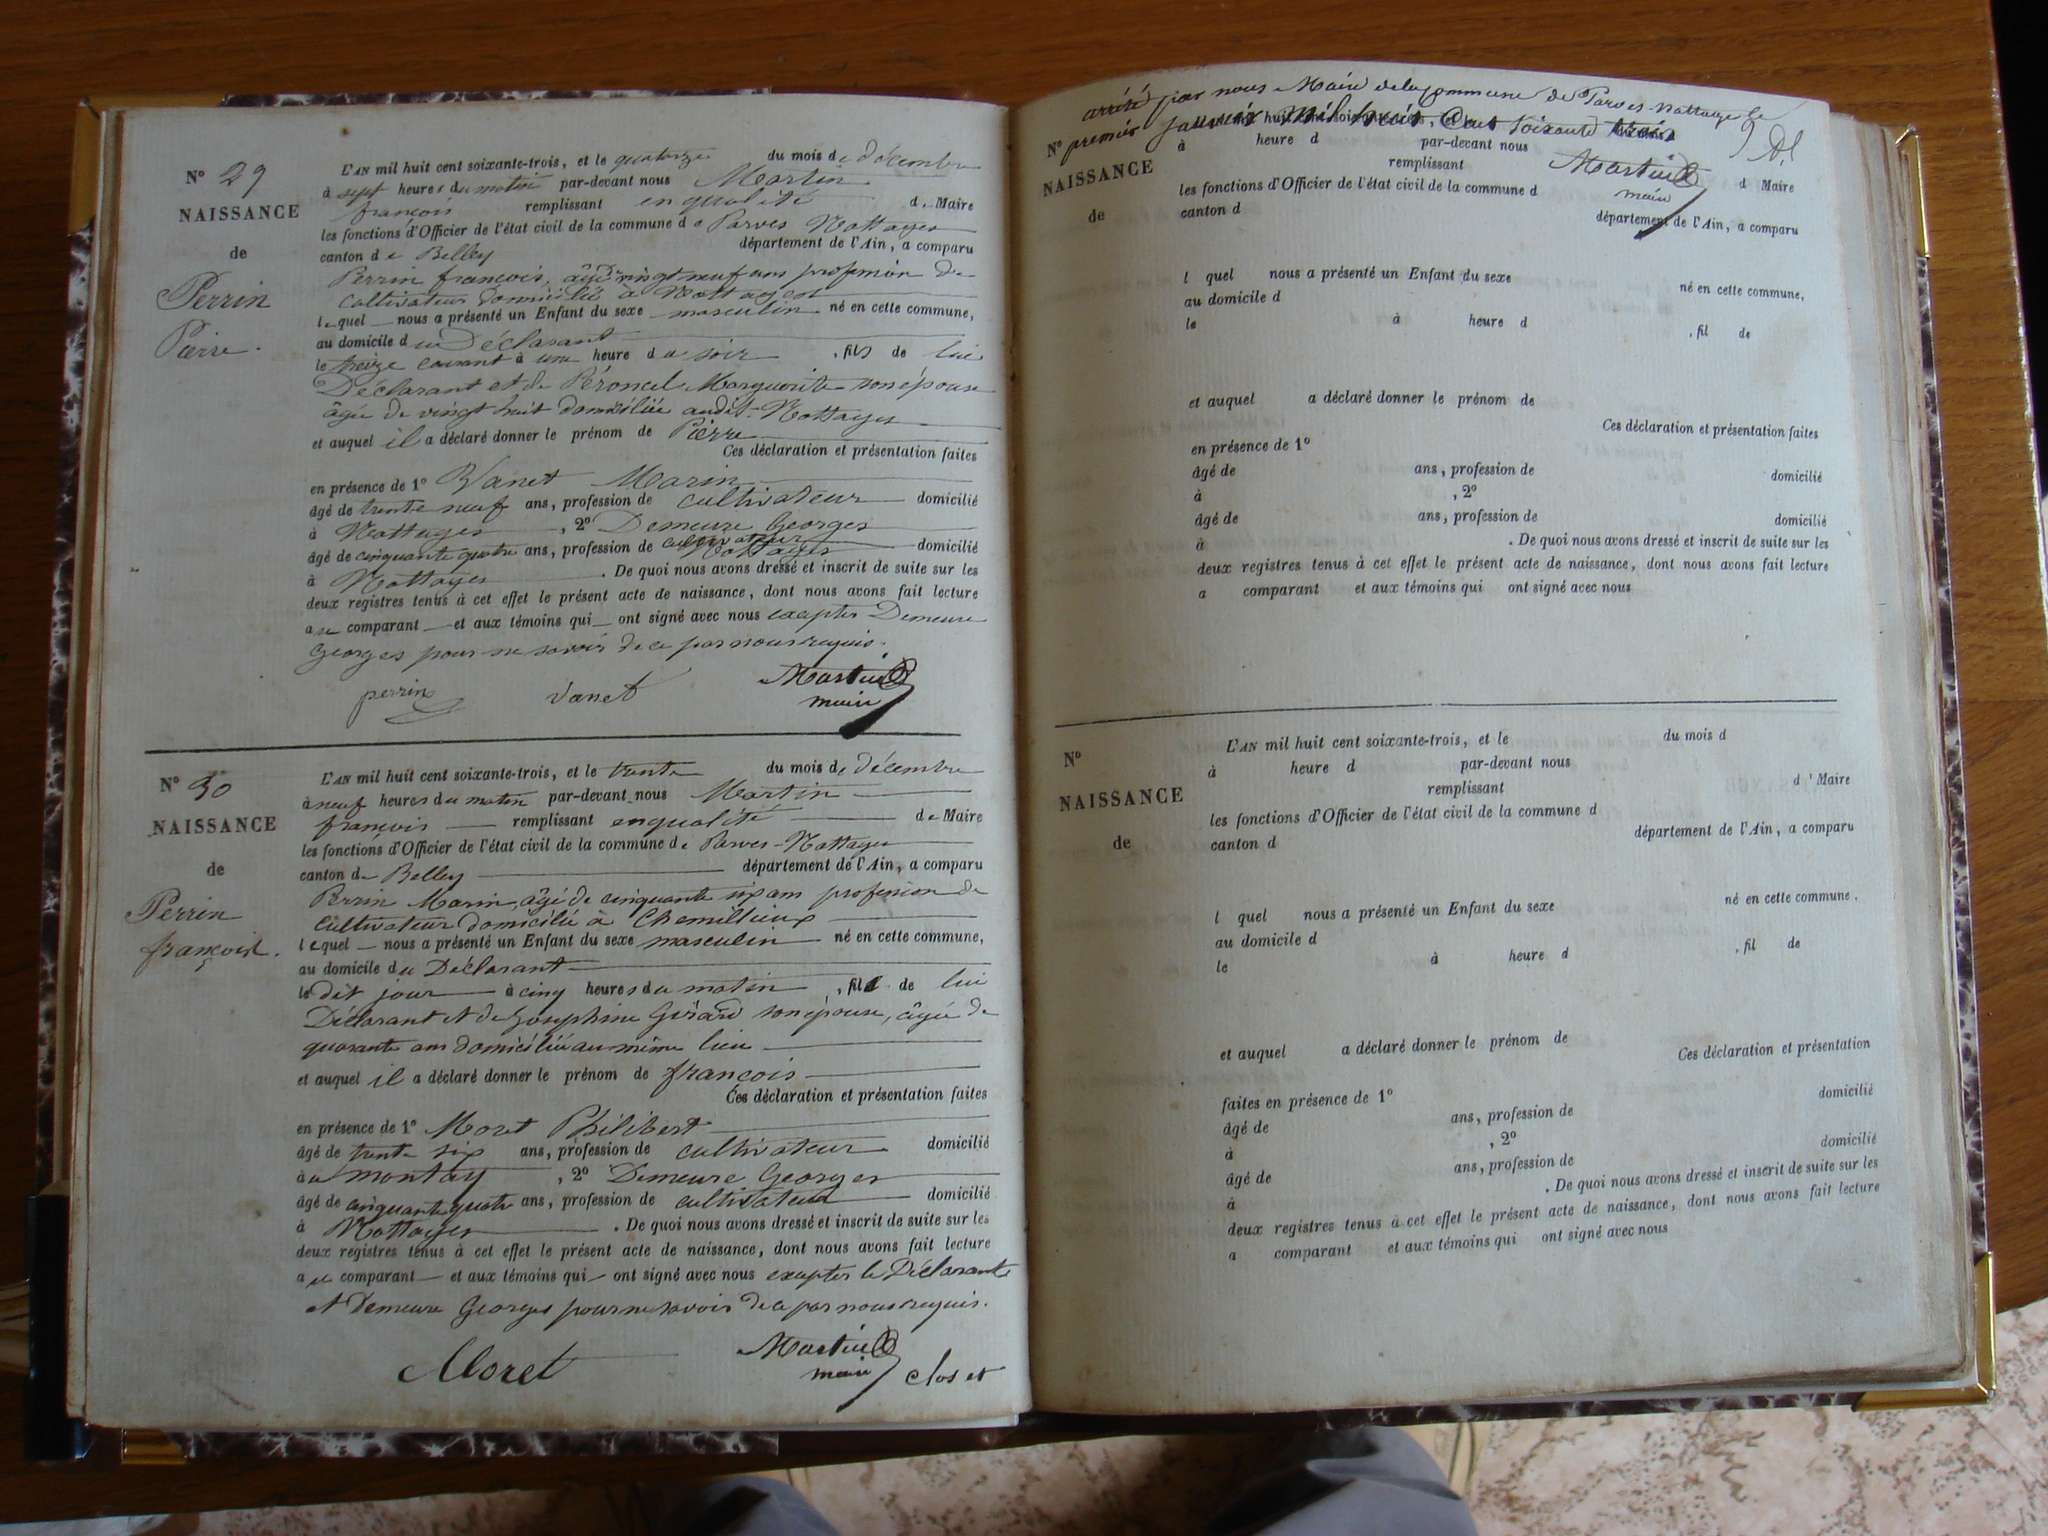 N° 29
NAISSANCE
de
Perrin
Pierre.
L'AN mil huit cent soixante-trois, et le quatorze du mois de décembre
à sept heures du matin par-devant nous Martin
françois remplissant en qualité de Maire
les fonctions d'Officier de l'état civil de la commune de Parves Nattages
canton de Belley département de l'Ain, a comparu
Perrin françois, âgé vingt neuf ans profession de
cultivateur domicilié à Nattages
lequel nous a présenté un Enfant du sexe masculin né en cette commune,
au domicile du Déclarant
le treize courant à une heure du soir, fils de lui
Déclarant et de Péroncel Marguerite son épouse
âgée de vingt huit domiciliée audit Nattages
et auquel il a déclaré donner le prénom de Pierre
Ces déclaration et présentation faites
en présence de 1° Vanet Marin
âgé de trente neuf ans, profession de cultivateur domicilié
à Nattages, 2° Demeure Georges
âgé de cinquante quatre ans, profession de cultivateur Nattages domicilié
à Nattages. De quoi nous avons dressé et inscrit de suite sur les
deux registres tenus à cet effet le présent acte de naissance, dont nous avons fait lecture
au comparant et aux témoins qui ont signé avec nous excepter Demeure
Georges pour ne savoir de ce par nous requis.
perrin Vanet Martin
maire
N° 30
NAISSANCE
de
Perrin
françois.
L'AN mil huit cent soixante-trois, et le trente du mois de décembre
à neuf heures du matin par-devant nous Martin
françois remplissant en qualité de Maire
les fonctions d'Officier de l'état civil de la commune de Parves-Nattages
canton de Belley département de l'Ain, a comparu
Perrin Marin, âgé de cinquante six ans profession de
cultivateur domicilié à Chemillieux
lequel nous a présenté un Enfant du sexe masculin né en cette commune,
au domicile du Déclarant
le dit jour à cinq heures du matin, fils de lui
Déclarant et de Josephine Girard son épouse, âgée de
quarante ans domiciliée au même lieu
et auquel il a déclaré donner le prénom de françois
Ces déclaration et présentation faites
en présence de 1° Moret Philibert
âgé de trente six ans, profession de cultivateur domicilié
au montay, 2° Demeure Georges
âgé de cinquante quatre ans, profession de cultivateur domicilié
à Nattages. De quoi nous avons dressé et inscrit de suite sur les
deux registres tenus à cet effet le présent acte de naissance, dont nous avons fait lecture
au comparant et aux témoins qui ont signé avec nous excepter le Déclarant
et Demeure Georges pour ne savoir de ce par nous requis.
Moret Martin
maire clos et
arrêté par nous Maire de la commune de Parves-Nattages le
premier janvier mil huit Cent soixante
Martin
maire
N°
NAISSANCE
de
à heure d par-devant nous
remplissant d Maire
les fonctions d'Officier de l'état civil de la commune d
canton d département de l'Ain, a comparu
l quel nous a présenté un Enfant du sexe né en cette commune,
au domicile d
le à heure d, fil de
et auquel a déclaré donner le prénom de
Ces déclaration et présentation faites
en présence de 1°
âgé de ans, profession de domicilié
à, 2°
âgé de ans, profession de domicilié
à. De quoi nous avons dressé et inscrit de suite sur les
deux registres tenus à cet effet le présent acte de naissance, dont nous avons fait lecture
a comparant et aux témoins qui ont signé avec nous
N°
NAISSANCE
de
L'AN mil huit cent soixante-trois, et le du mois d
à heure d par-devant nous
remplissant d Maire
les fonctions d'Officier de l'état civil de la commune d
canton d département de l'Ain, a comparu
l quel nous a présenté un Enfant du sexe né en cette commune.
au domicile d
le à heure d, fil de
et auquel a déclaré donner le prénom de
Ces déclaration et présentation
faites en présence de 1°
âgé de ans, profession de domicilié
à, 2°
âgé de ans, profession de domicilié
à. De quoi nous avons dressé et inscrit de suite sur les
deux registres tenus à cet effet le présent acte de naissance, dont nous avons fait lecture
a comparant et aux témoins qui ont signé avec nous